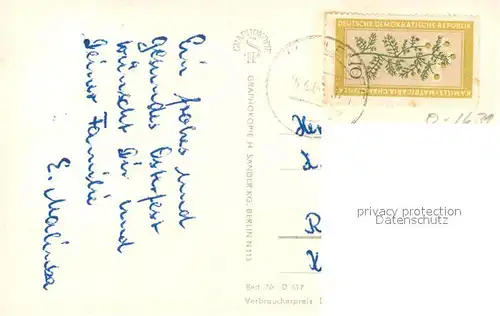 Ein frohes und
gesundes Osterfest
wünscht Dir und
Deiner Familie
E. Malinka
GRAPHOKOPIE
GRAPHOKOPIE H. SANDER KG. BERLIN N 113
Best.-Nr. D 617
Verbraucherpreis
DEUTSCHE DEMOKRATISCHE REPUBLIK
10
KAMILLE · MATRICARIA CHAMOMILLA
privacy protection
Datenschutz